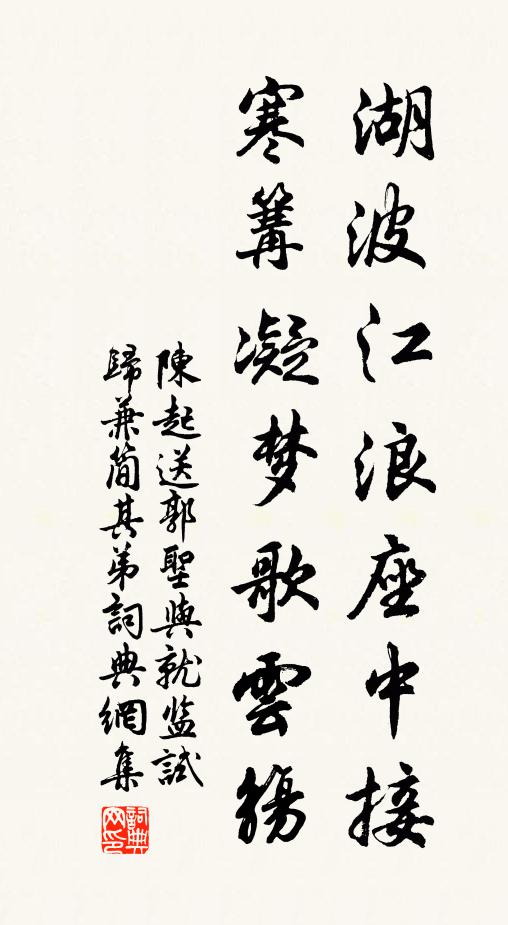 湖波江浪座中接
寒篝凝梦歌雲觴
陳起送郭聖與就监試
歸兼简其弟詞典網集
詞典
网印